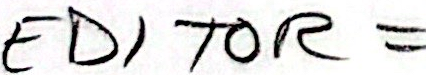 EDITOR =